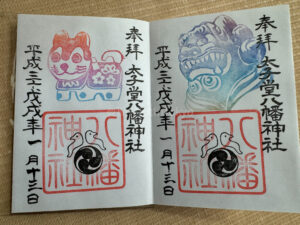 奉拝 太子堂八幡神社
八幡
神社
平成三十戊戌年 一月十三日
奉拝 太子堂八幡神社
八幡
神社
平成三十戊戌年 一月十三日